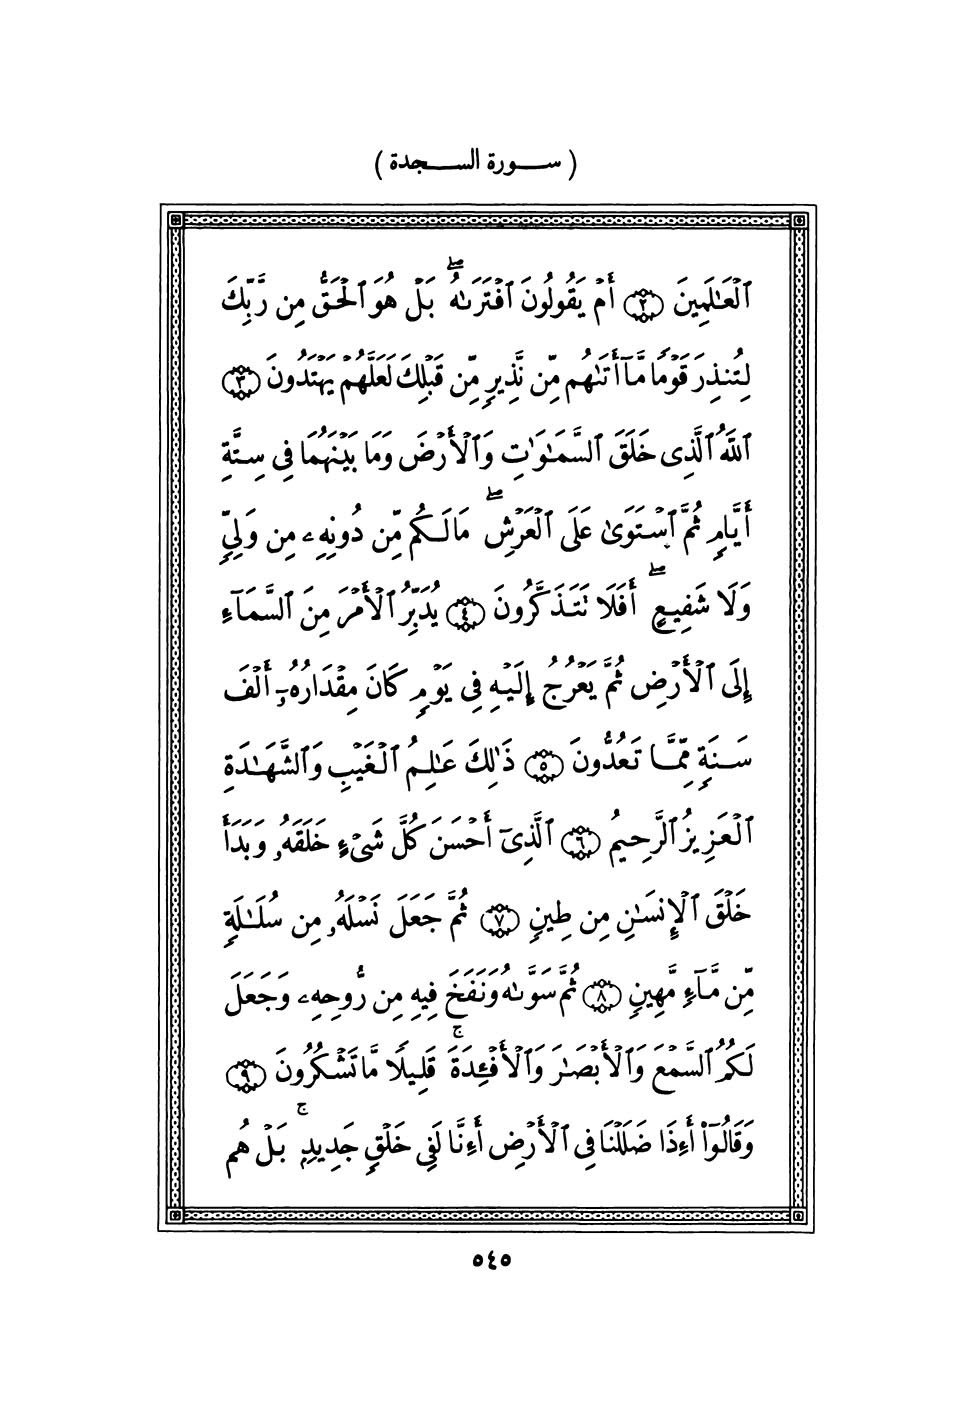 ( سـورة السـجدة )
ٱلۡعَـٰلَمِينَ ٢ أَمۡ يَقُولُونَ ٱفۡتَرَىٰهُۖ بَلۡ هُوَ ٱلۡحَقُّ مِن رَّبِّكَ
لِتُنذِرَ قَوۡمٗا مَّآ أَتَىٰهُم مِّن نَّذِيرٖ مِّن قَبۡلِكَ لَعَلَّهُمۡ يَهۡتَدُونَ ٣
ٱللَّهُ ٱلَّذِى خَلَقَ ٱلسَّمَـٰوَٰتِ وَٱلۡأَرۡضَ وَمَا بَيۡنَهُمَا فِى سِتَّةِ
أَيَّامٖ ثُمَّ ٱسۡتَوَىٰ عَلَى ٱلۡعَرۡشِۖ مَا لَـكُم مِّن دُونِهِۦ مِن وَلِىّٖ
وَلَا شَفِيعٍۖ أَفَلَا تَتَذَكَّرُونَ ٤ يُدَبِّرُ ٱلۡأَمۡرَ مِنَ ٱلسَّمَآءِ
إِلَى ٱلۡأَرۡضِ ثُمَّ يَعۡرُجُ إِلَيۡهِ فِى يَوۡمٖ كَانَ مِقۡدَارُهُۥٓ أَلۡفَ
سَـنَةٖ مِّمَّـا تَعُدُّونَ ٥ ذَٰلِكَ عَـٰلِمُ ٱلۡغَيۡبِ وَٱلشَّهَـٰدَةِ
ٱلۡعَزِيزُ ٱلرَّحِيمُ ٦ ٱلَّذِىٓ أَحۡسَنَ كُلَّ شَىۡءٍ خَلَقَهُۥ وَبَدَأَ
خَلۡقَ ٱلۡإِنسَـٰنِ مِن طِينٖ ٧ ثُمَّ جَعَلَ نَسۡلَهُۥ مِن سُلَـٰلَةٖ
مِّن مَّآءٖ مَّهِينٖ ٨ ثُمَّ سَوَّىٰهُ وَنَفَخَ فِيهِ مِن رُّوحِهِۦ وَجَعَلَ
لَكُمُ ٱلسَّمۡعَ وَٱلۡأَبۡصَـٰرَ وَٱلۡأَفۡـِٔدَةَۚ قَلِيلٗا مَّا تَشۡكُرُونَ ٩
وَقَالُوٓاْ أَءِذَا ضَلَلۡنَا فِى ٱلۡأَرۡضِ أَءِنَّا لَفِى خَلۡقٖ جَدِيدِۭۚ بَلۡ هُم
٥٤٥